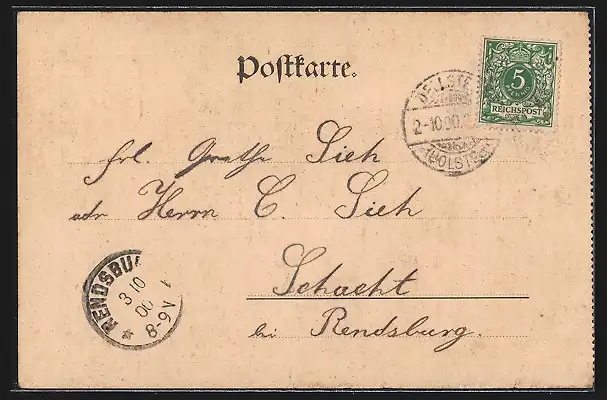 Postkarte.
5
REICHSPOST
2-10.00.
(HOLSTEIN)
Frl. Grethe Sieh
adr Herrn C. Sieh
Schacht
bei Rendsburg.
RENDSBU
3 10
00
8-9V